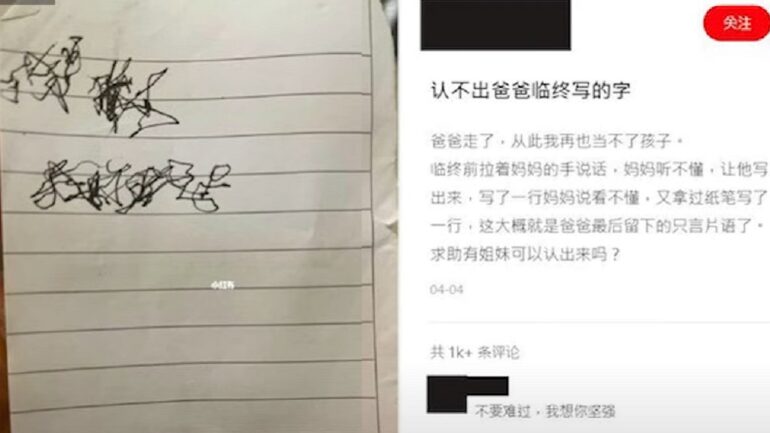 关注
认不出爸爸临终写的字
爸爸走了，从此我再也当不了孩子。
临终前拉着妈妈的手说话，妈妈听不懂，让他写
出来，写了一行妈妈说看不懂，又拿过纸笔写了
一行，这大概就是爸爸最后留下的只言片语了。
求助有姐妹可以认出来吗？
04-04
共 1k+ 条评论
不要难过，我想你坚强
小红书